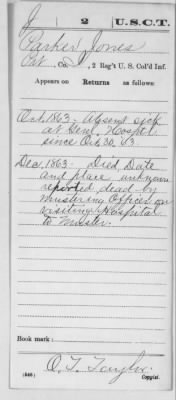 J | 2 | U.S.C.T.
Parker Jones
Pvt., Co. , 2 Reg't U. S. Col'd Inf.
Appears on Returns as follows:
Oct. 1863. Absent sick
at Genl. Hosptl.
since Oct. 30, 63.
Dec. 1863. Died, Date
and place unknown
reported dead by
mustering Officer on
visiting Hospital
to Muster.
Book mark:
O. T. Taylor
(546) Copyist.